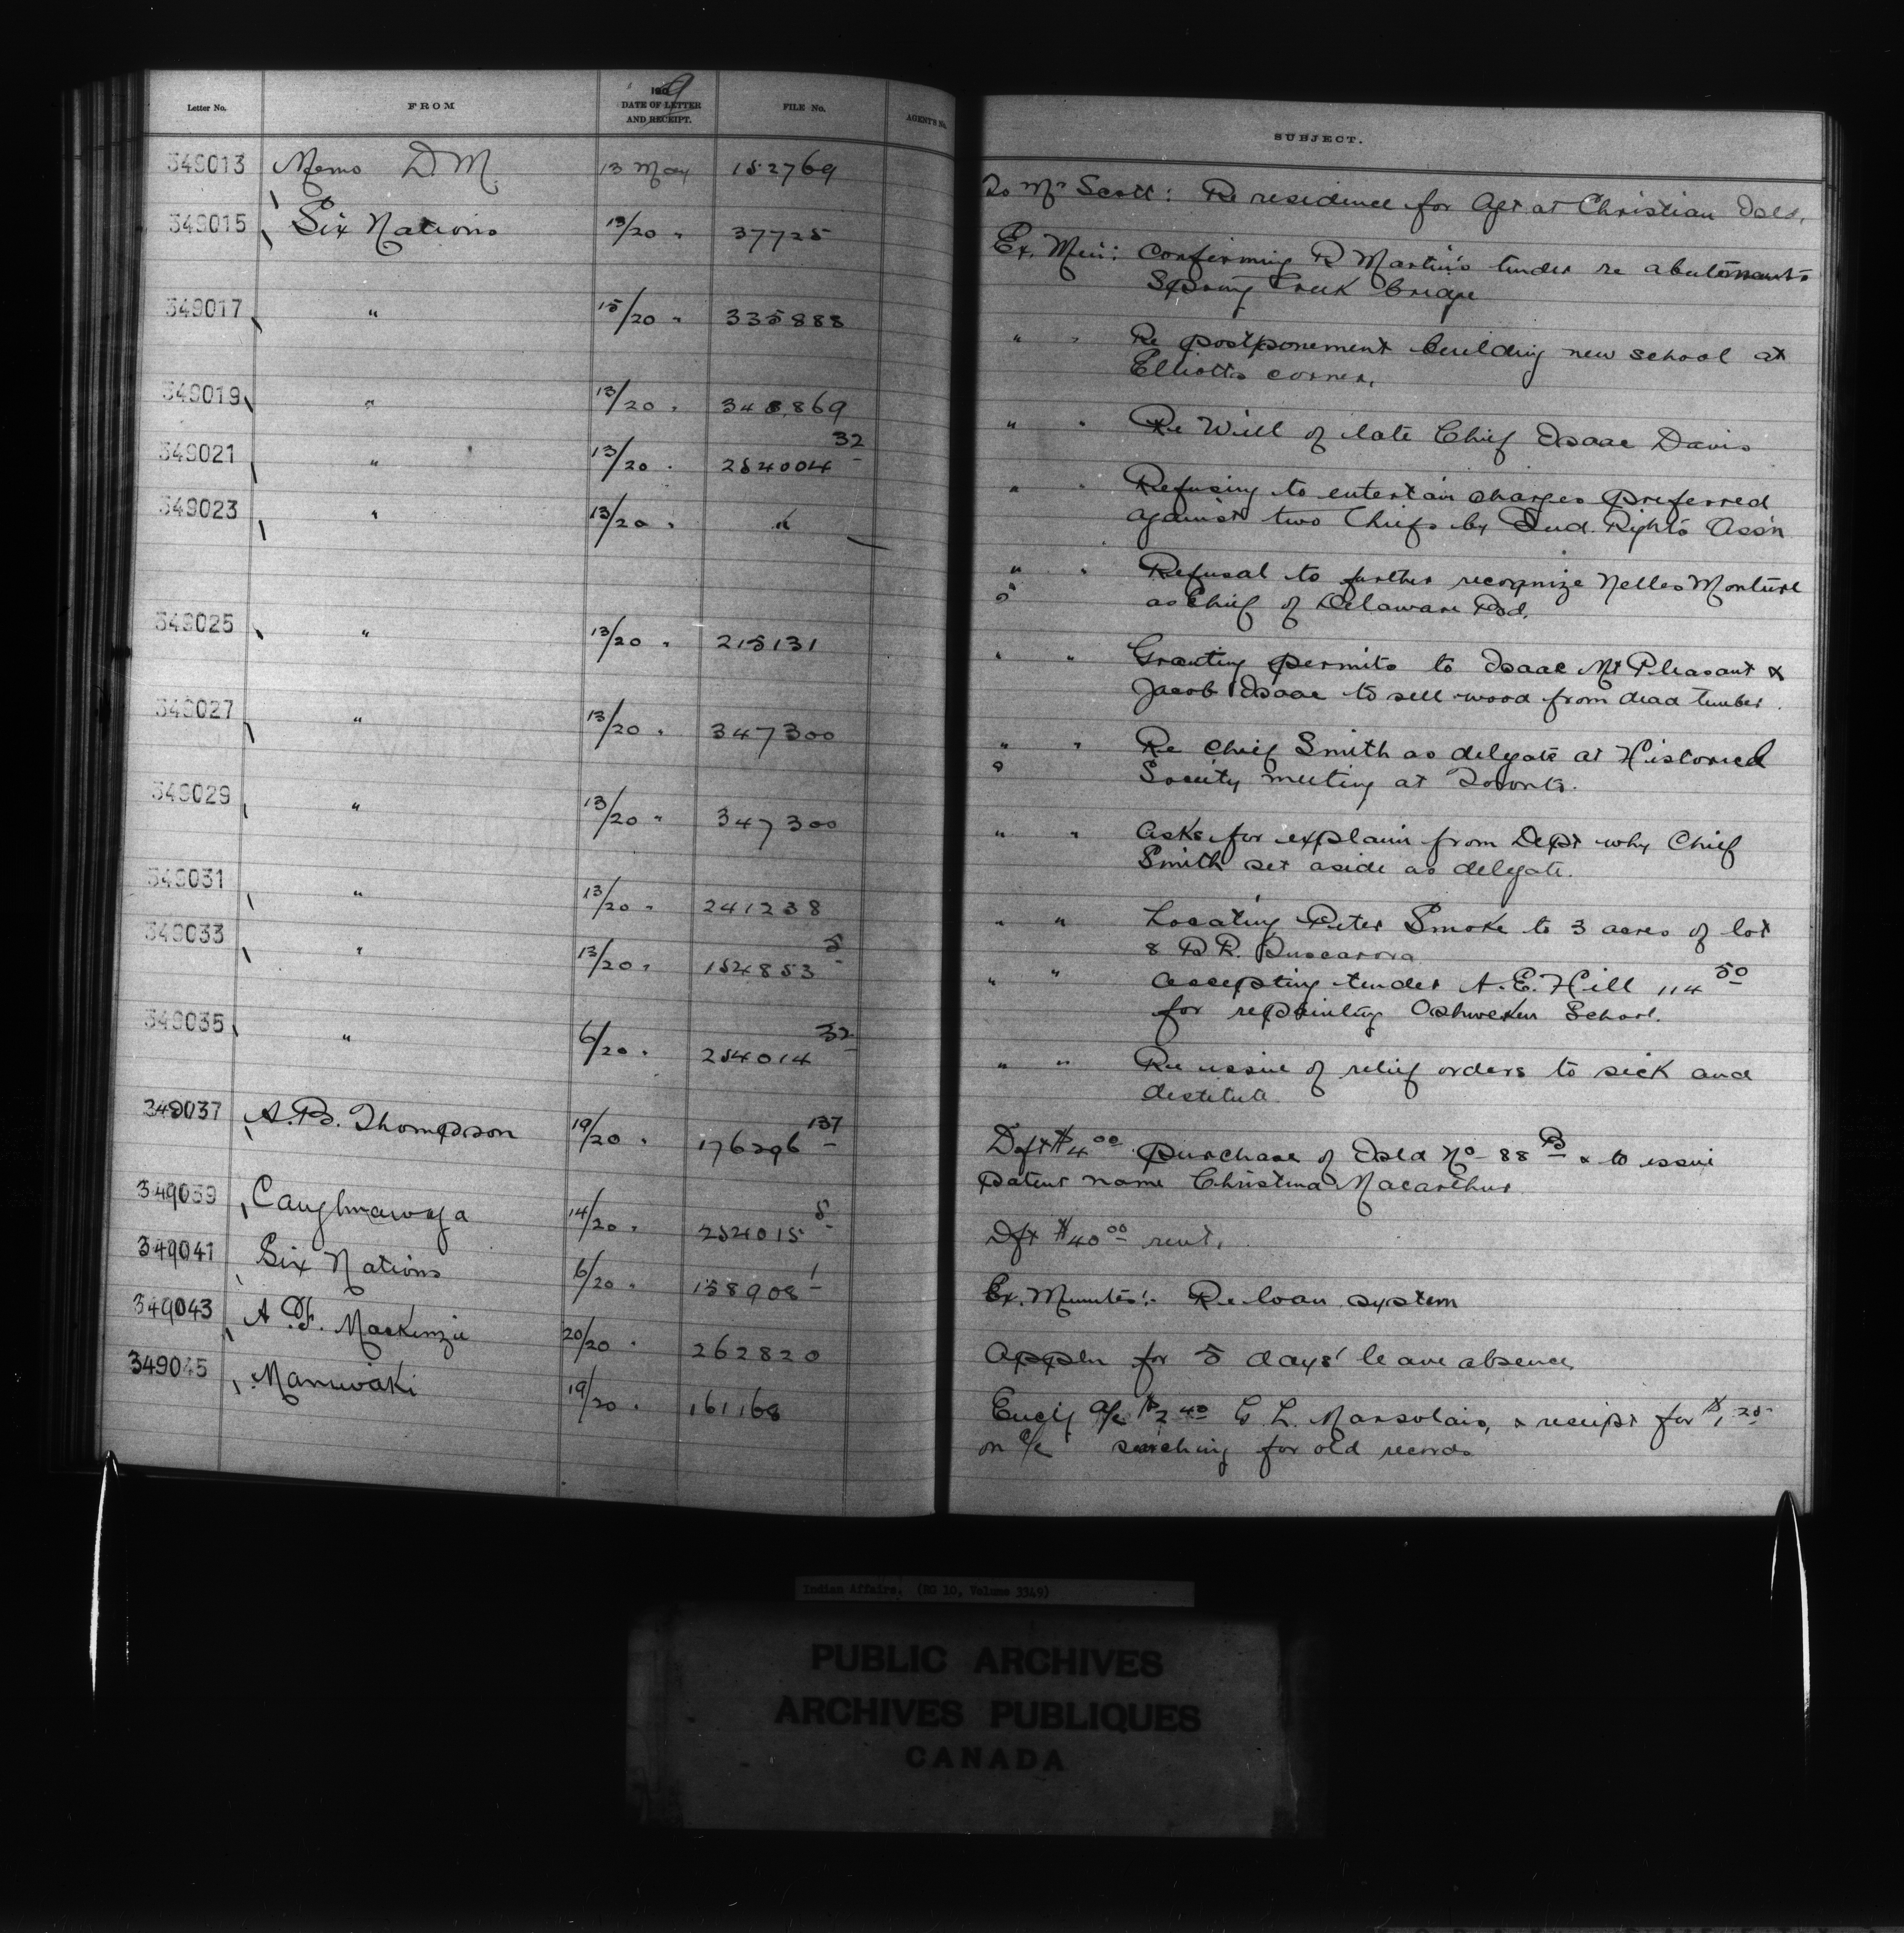 Letter No. FROM 190 9 DATE OF LETTER AND RECEIPT. FILE No. AGENT'S No. SUBJECT.
349013 Memo D.M. 13 May 152769 To Mr Scott: Re residence for Agt at Christian Isld.
349015 Six Nations 13/20 " 37725 Ex. Min: Confirming R Martin's tender re abutments
Spring Creek bridge
349017 " 15/20 " 335888 " " Re postponement building new school at
Elliotts corner.
349019 " 13/20 " 348869 " " Re Will of late Chief Isaac Davis
349021 " 13/20 " 254004 32 " " Refusing to entertain charges preferred
against two Chiefs by Ind. Rights Ass'n
349023 " 13/20 " " " " Refusal to further recognize Nelles Monture
as Chief of Delaware Bd.
349025 " 13/20 " 215131 " " Granting permits to Isaac Mt Pleasant &
Jacob Isaac to sell wood from dead timber.
349027 " 13/20 " 347300 " " Re Chief Smith as delegate at Historical
Society meeting at Toronto.
349029 " 13/20 " 347300 " " Asks for explain from Dept why Chief
Smith set aside as delegate.
349031 " 13/20 " 241238 " " Locating Peter Smoke to 3 acres of lot
8 R.R. Tuscarora
349033 " 13/20 " 154853 5 " " Accepting tender A.E. Hill 114 50
for repainting Oshweken School.
349035 " 6/20 " 254014 32 " " Re issue of relief orders to sick and
destitute
349037 A.B. Thompson 19/20 " 176296 137 Dft $4 00 purchase of Isld No 88 B & to issue
patent name Christina Macarthur
349039 Caughnawaga 14/20 " 252015 8 Dft $40 00 rent.
349041 Six Nations 6/20 " 158908 1 Ex. Minutes: Re loan system
349043 A.F. MacKenzie 20/20 " 262820 Appln for 5 days' leave absence
349045 Maniwaki 19/20 " 161168 a/c $2 40 G. L. Marsolais, & receipt for $1 25
on a/c searching for old records
Indian Affairs. (RG 10, Volume 3349)
PUBLIC ARCHIVES
ARCHIVES PUBLIQUES
CANADA